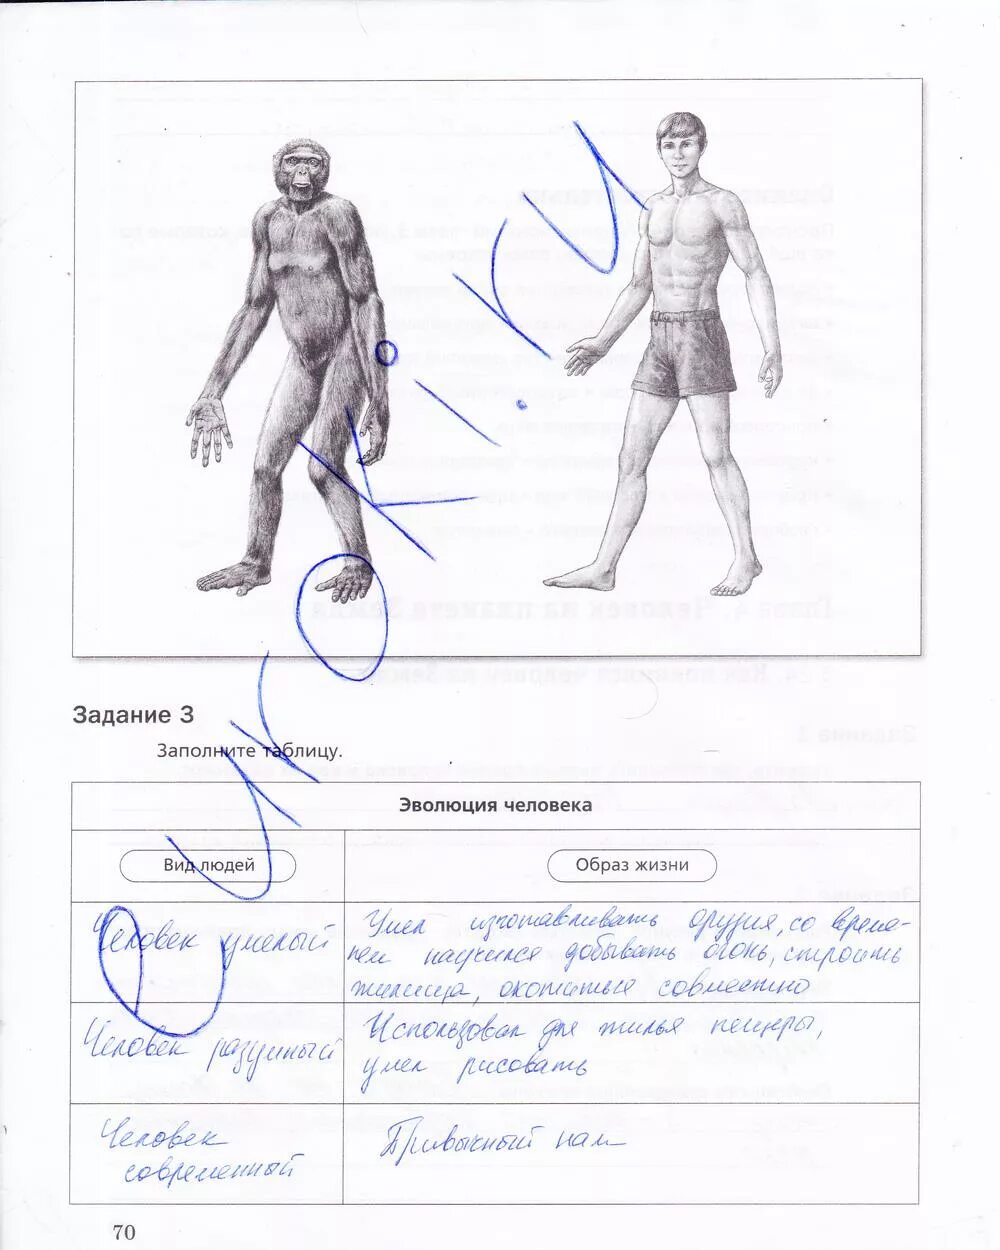 Задание 3
Заполните таблицу.
Эволюция человека
Вид людей
Образ жизни
Человек умелый
Умел изготавливать орудия, со време-
нем научился добывать огонь, строить
жилища, охотиться совместно
Человек разумный
Использовал для жилья пещеры,
умел рисовать
Человек
современный
Привычный нам
70